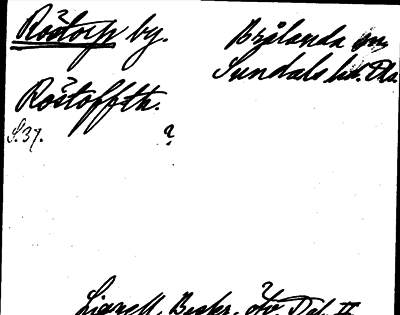 Rostorp by. Brålanda sn,
Sundals hd. Dls
Rostoffth.
S. 37. ?
Lignell, Beskr. öfv. Dal. II